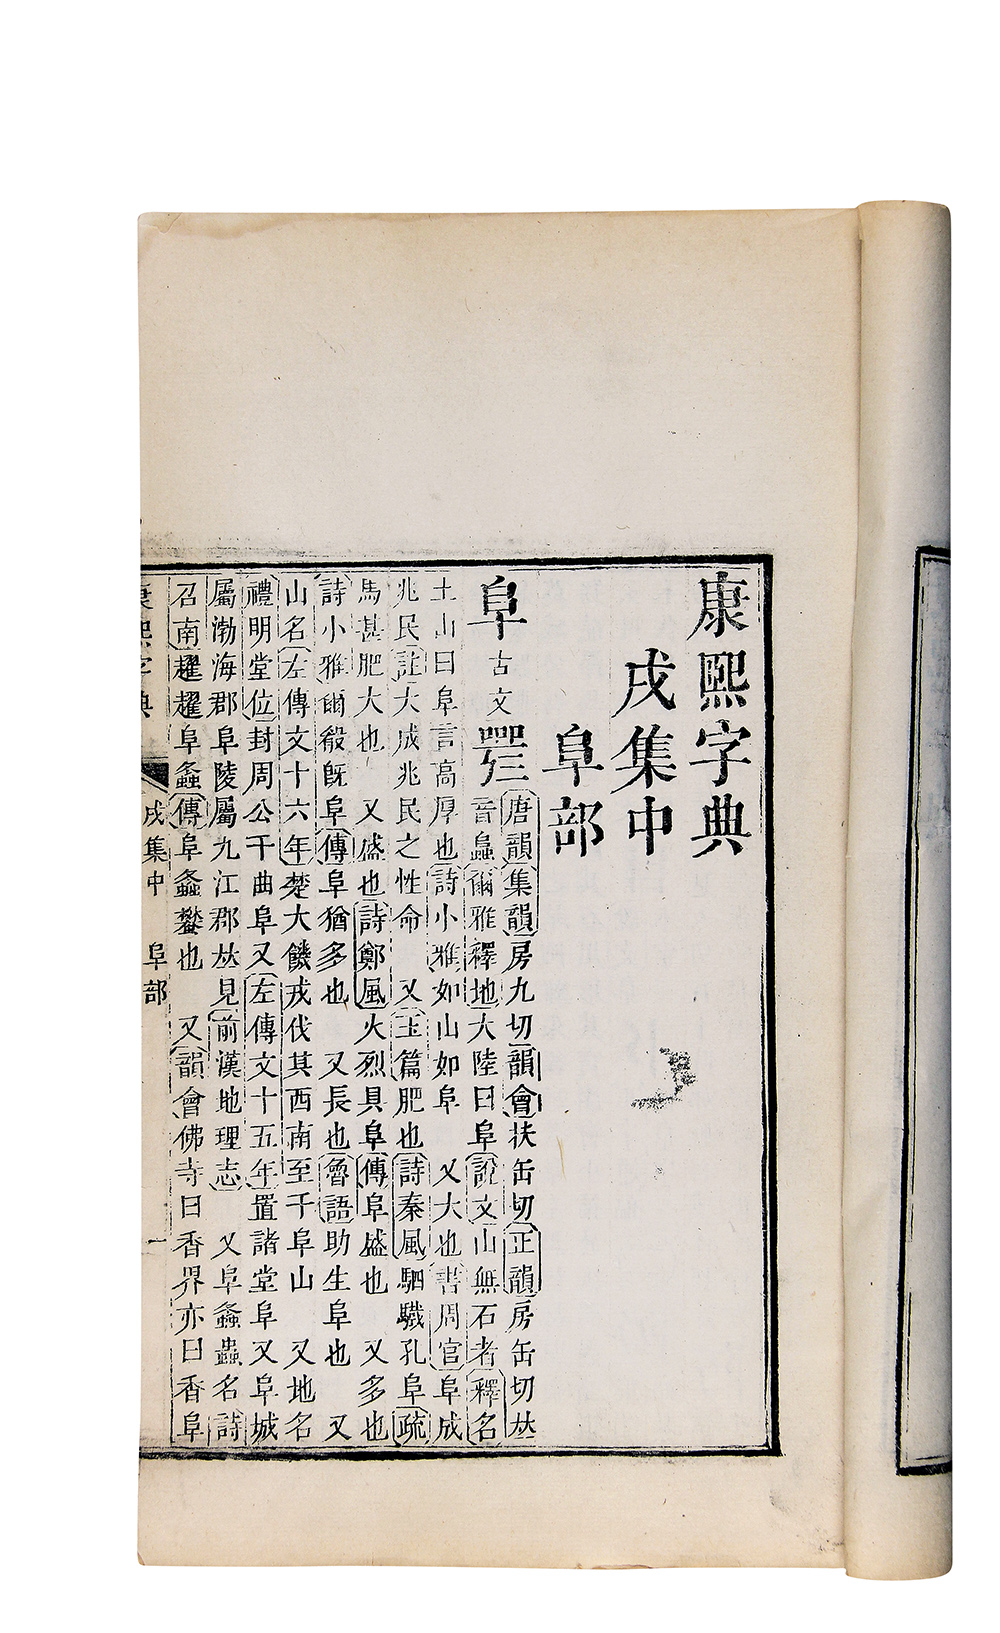 康熙字典
戌集中
阜部
阜古文𨸏唐韻集韻房九切韻會扶缶切正韻房缶切𠀤
音䘀爾雅釋地大陸曰阜說文山無石者釋名
土山曰阜言高厚也詩小雅如山如阜 又大也書周官阜成
兆民註大成兆民之性命 又玉篇肥也詩秦風駟驖孔阜疏
馬甚肥大也 又盛也詩鄭風火烈具阜傳阜盛也 又多也
詩小雅爾殽旣阜傳阜猶多也 又長也魯語助生阜也 又
山名左傳文十六年楚大饑戎伐其西南至于阜山 又地名
禮明堂位封周公于曲阜又左傳文十五年置諸堂阜又阜城
屬渤海郡阜陵屬九江郡𠀤見前漢地理志 又阜螽蟲名詩
召南趯趯阜螽傳阜螽蠜也 又韻會佛寺曰香界亦曰香阜
康熙字典 戌集中 阜部 一